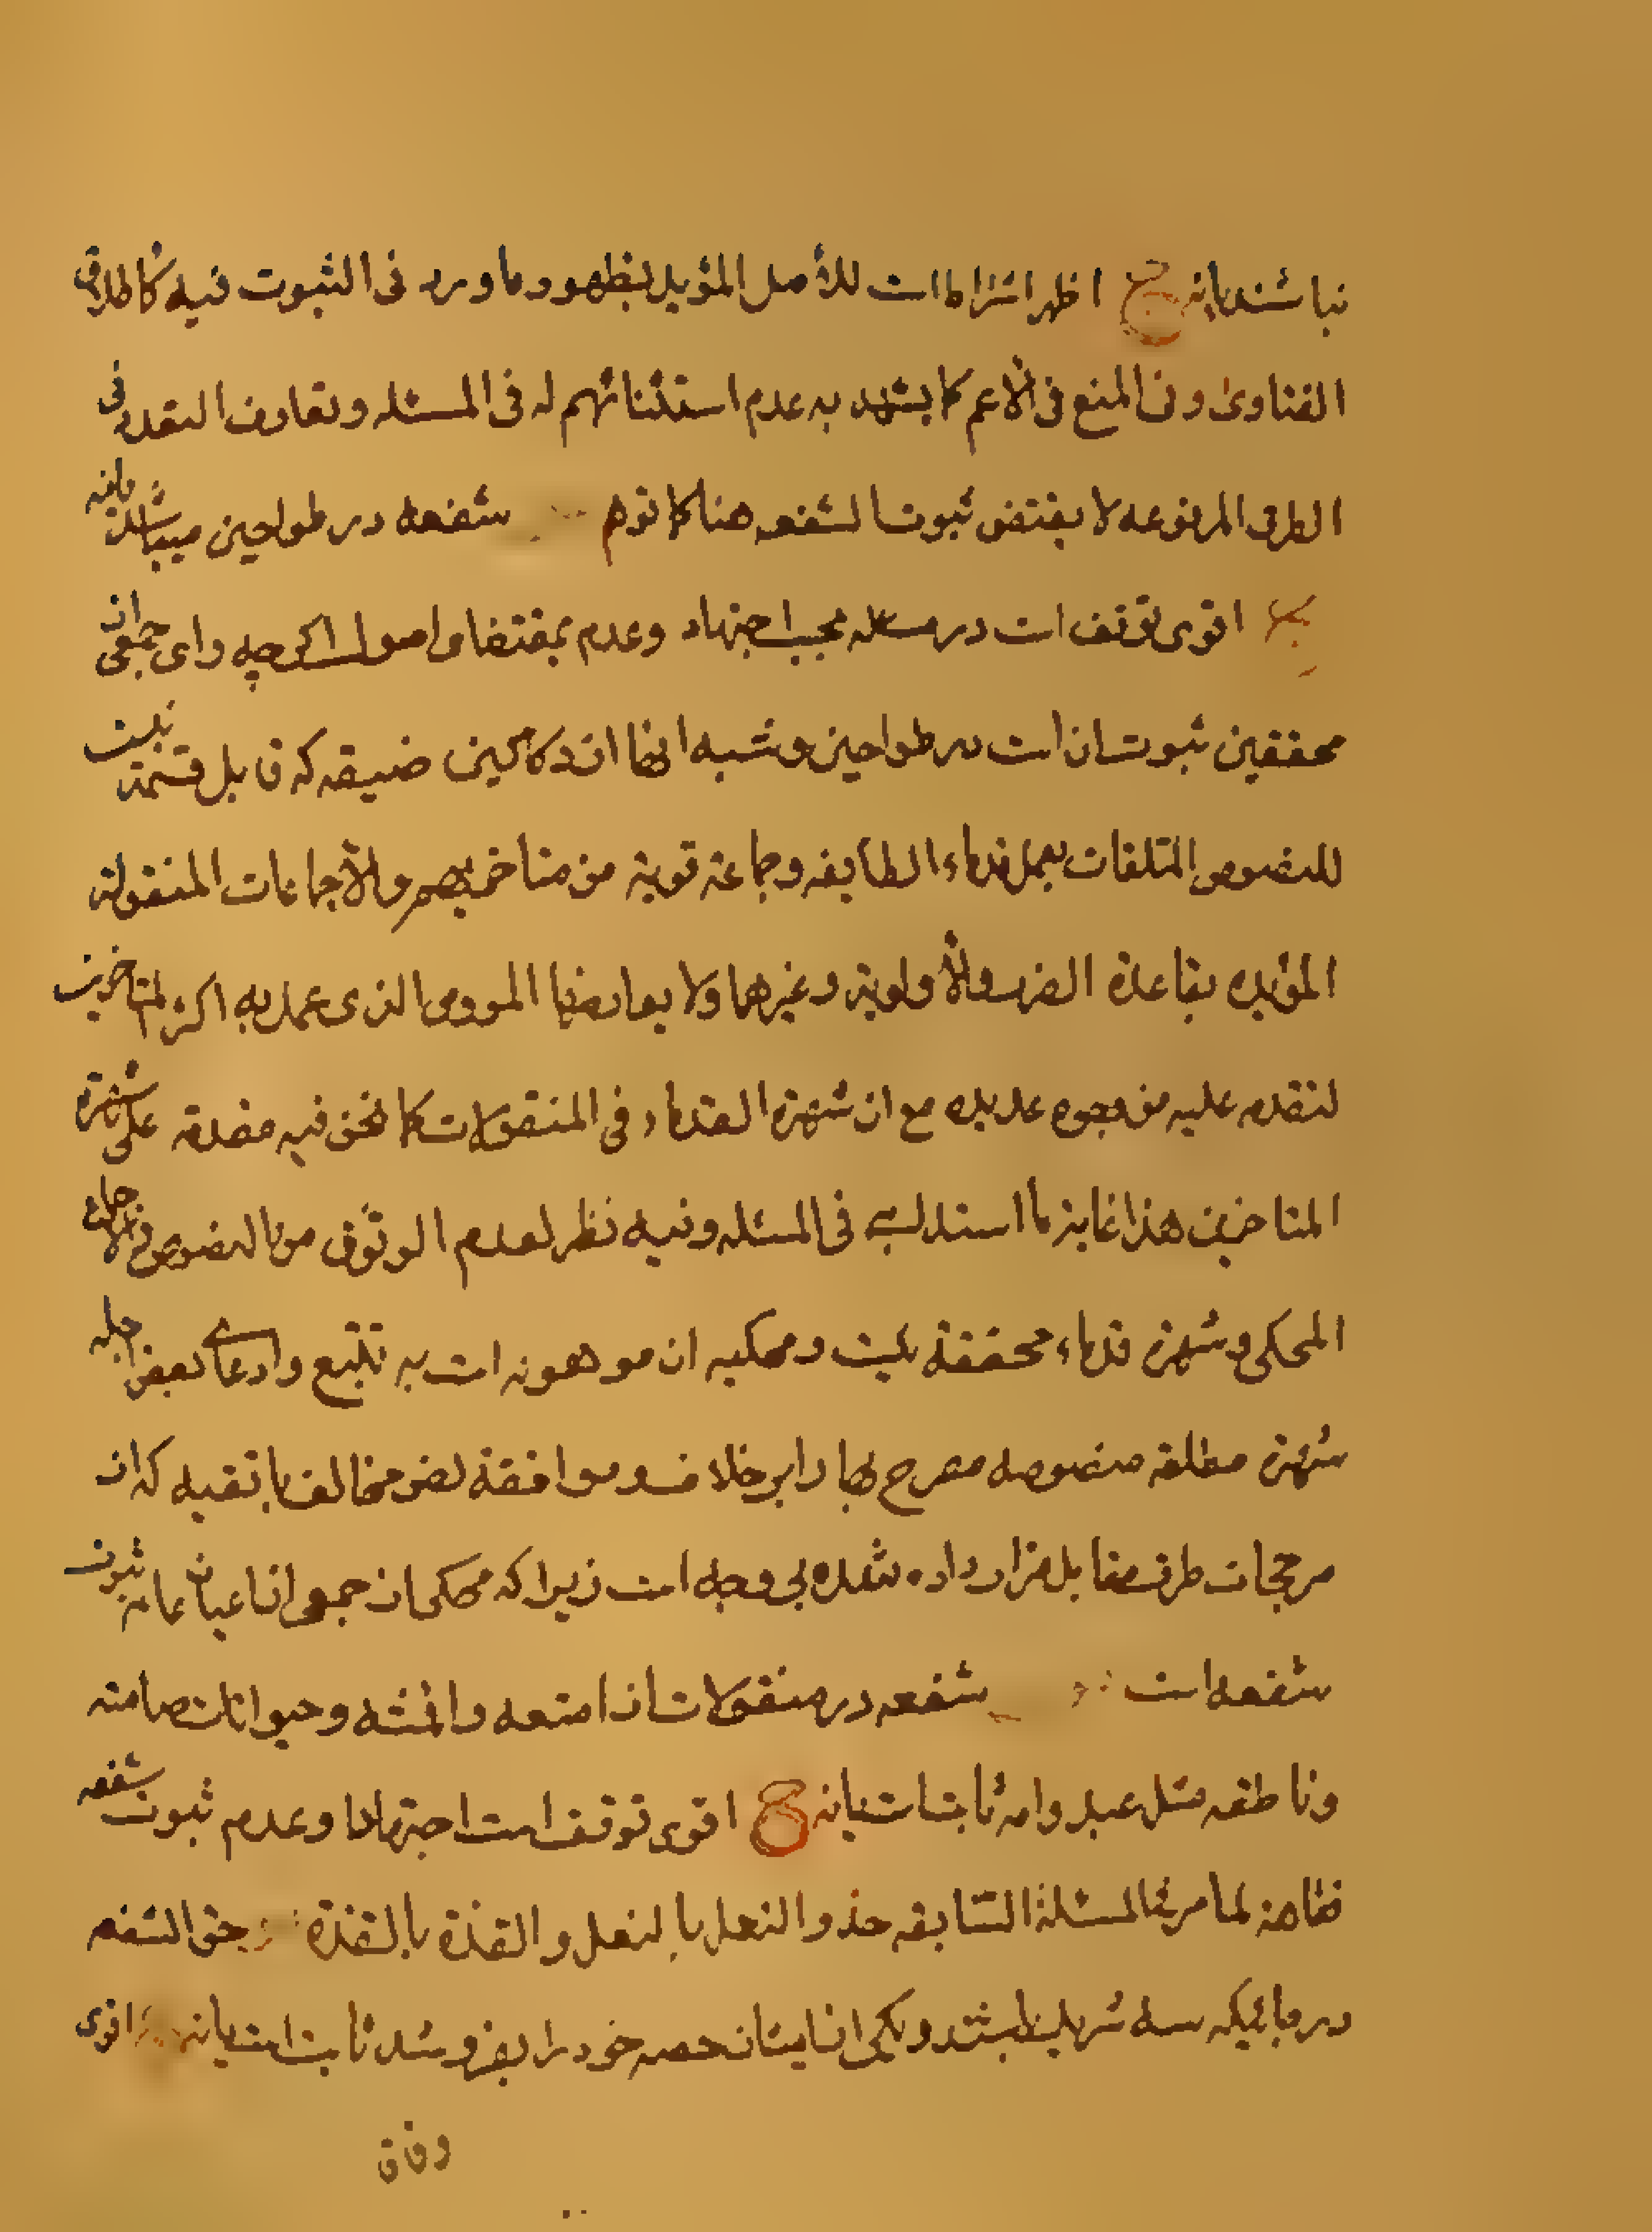 نباشند یا نه ج اظهر اشتراط است للأصل المؤید بظهور ما ورد فی الثبوت فیه کاطلاق
الفتاوی و فی المنع فی الأعم کما یشهد به عدم استثنائهم له فی المسئله و تعارف التعدد فی
الطرق المرفوعه لا یقتضی ثبوت الشفعه هنا کما توهم شفعه در طواحین میباشد یا نه
اقوی توقف است در مسئله بحسب اجتهاد و عدم بمقتضای اصول اگر چه رای جمعی از
محققین ثبوت ان است در طواحین و شبه انها از دکاکین ضیقه که قابل قسمت نیست
للنصوص المتلقات بعمل قدماء الطایفه و جماعة قویة من متاخریهم و الأجماعات المنقولة
المؤیده بقاعدة الضرر و الأولویة و غیرهما و لا یعارضها المروی الذی عمل به اکثر المتاخرین
لتقدمه علیه من وجوه عدیده مع ان شهرة القدماء فی المنقولات کما نحن فیه مقدمه علی شهرة
المتاخرین هذا غایة ما استدل به فی المسئله و فیه نظر لعدم الوثوق من النصوص و الاجماع
المحکی و شهرة قدماء محققة نیست و محکیه ان موهونه است به تتبع و ادعای بعض اجله
شهرة مطلقه منصوصه مصرح بها را بر خلاف و موافقة نص مخالف با تقیه که از
مرجحات طرف مقابل قرار داده شده بی وجه است زیرا که محکی از جمعی از اعیان عامه ثبوت
شفعه است شفعه در منقولات از امتعه و اقمشه و حیوانات صامته
و ناطقه مثل عبد و امه ثابت است یا نه ج اقوی توقف است اجتهادا و عدم ثبوت شفعه
فقاهة لما مر فی المسئلة السابقه حذو النعل بالنعل و القذة بالقذة حق الشفعه
در جائیکه سه شریک باشند و یکی از ایشان حصه خود را بفروشد ثابت است یا نه ج اقوی
وفاق